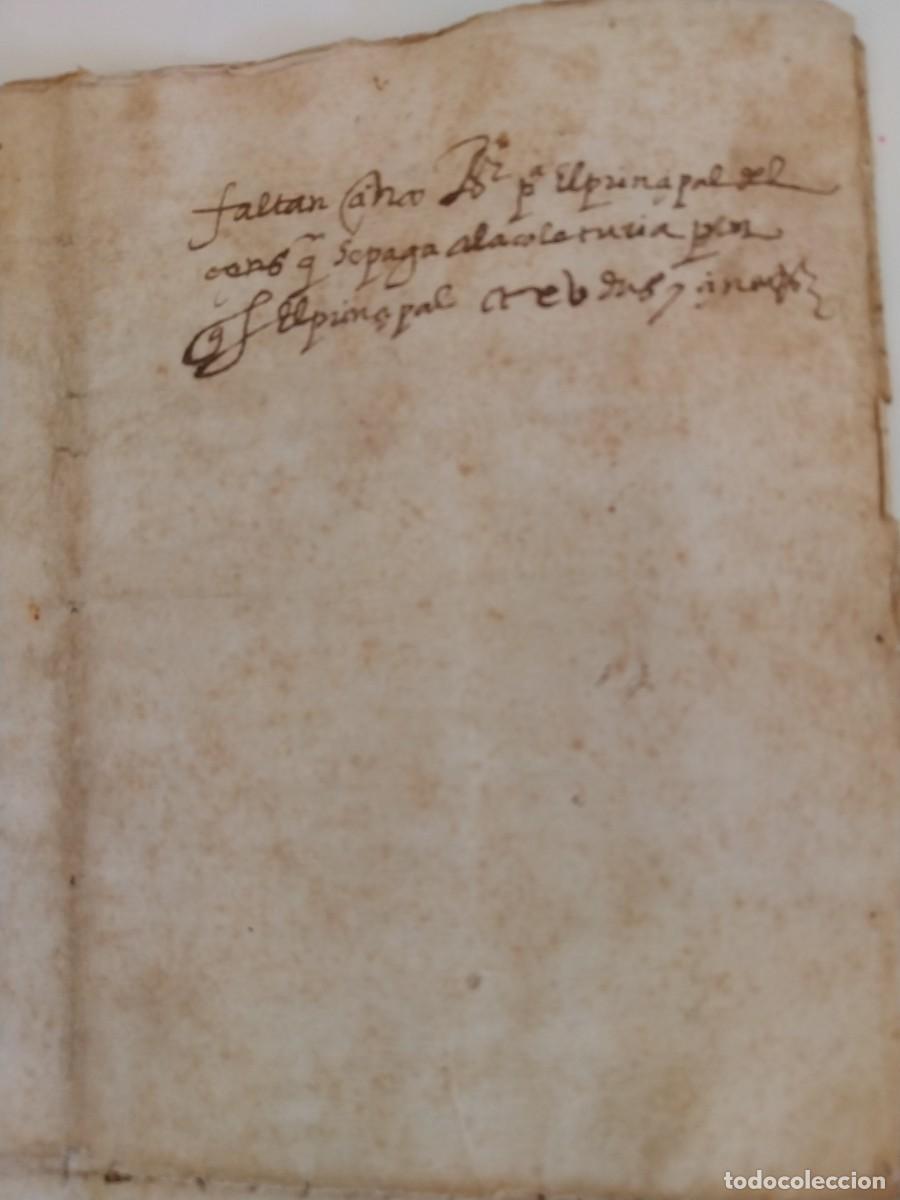 faltan çinco Rs pa El prinçipal del
cens q̃ se paga a la coleturia por
q̃ El prinçipal
todocoleccion